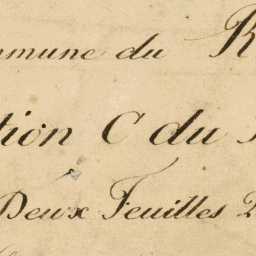 mmune du R
tion C du
Deux Feuilles